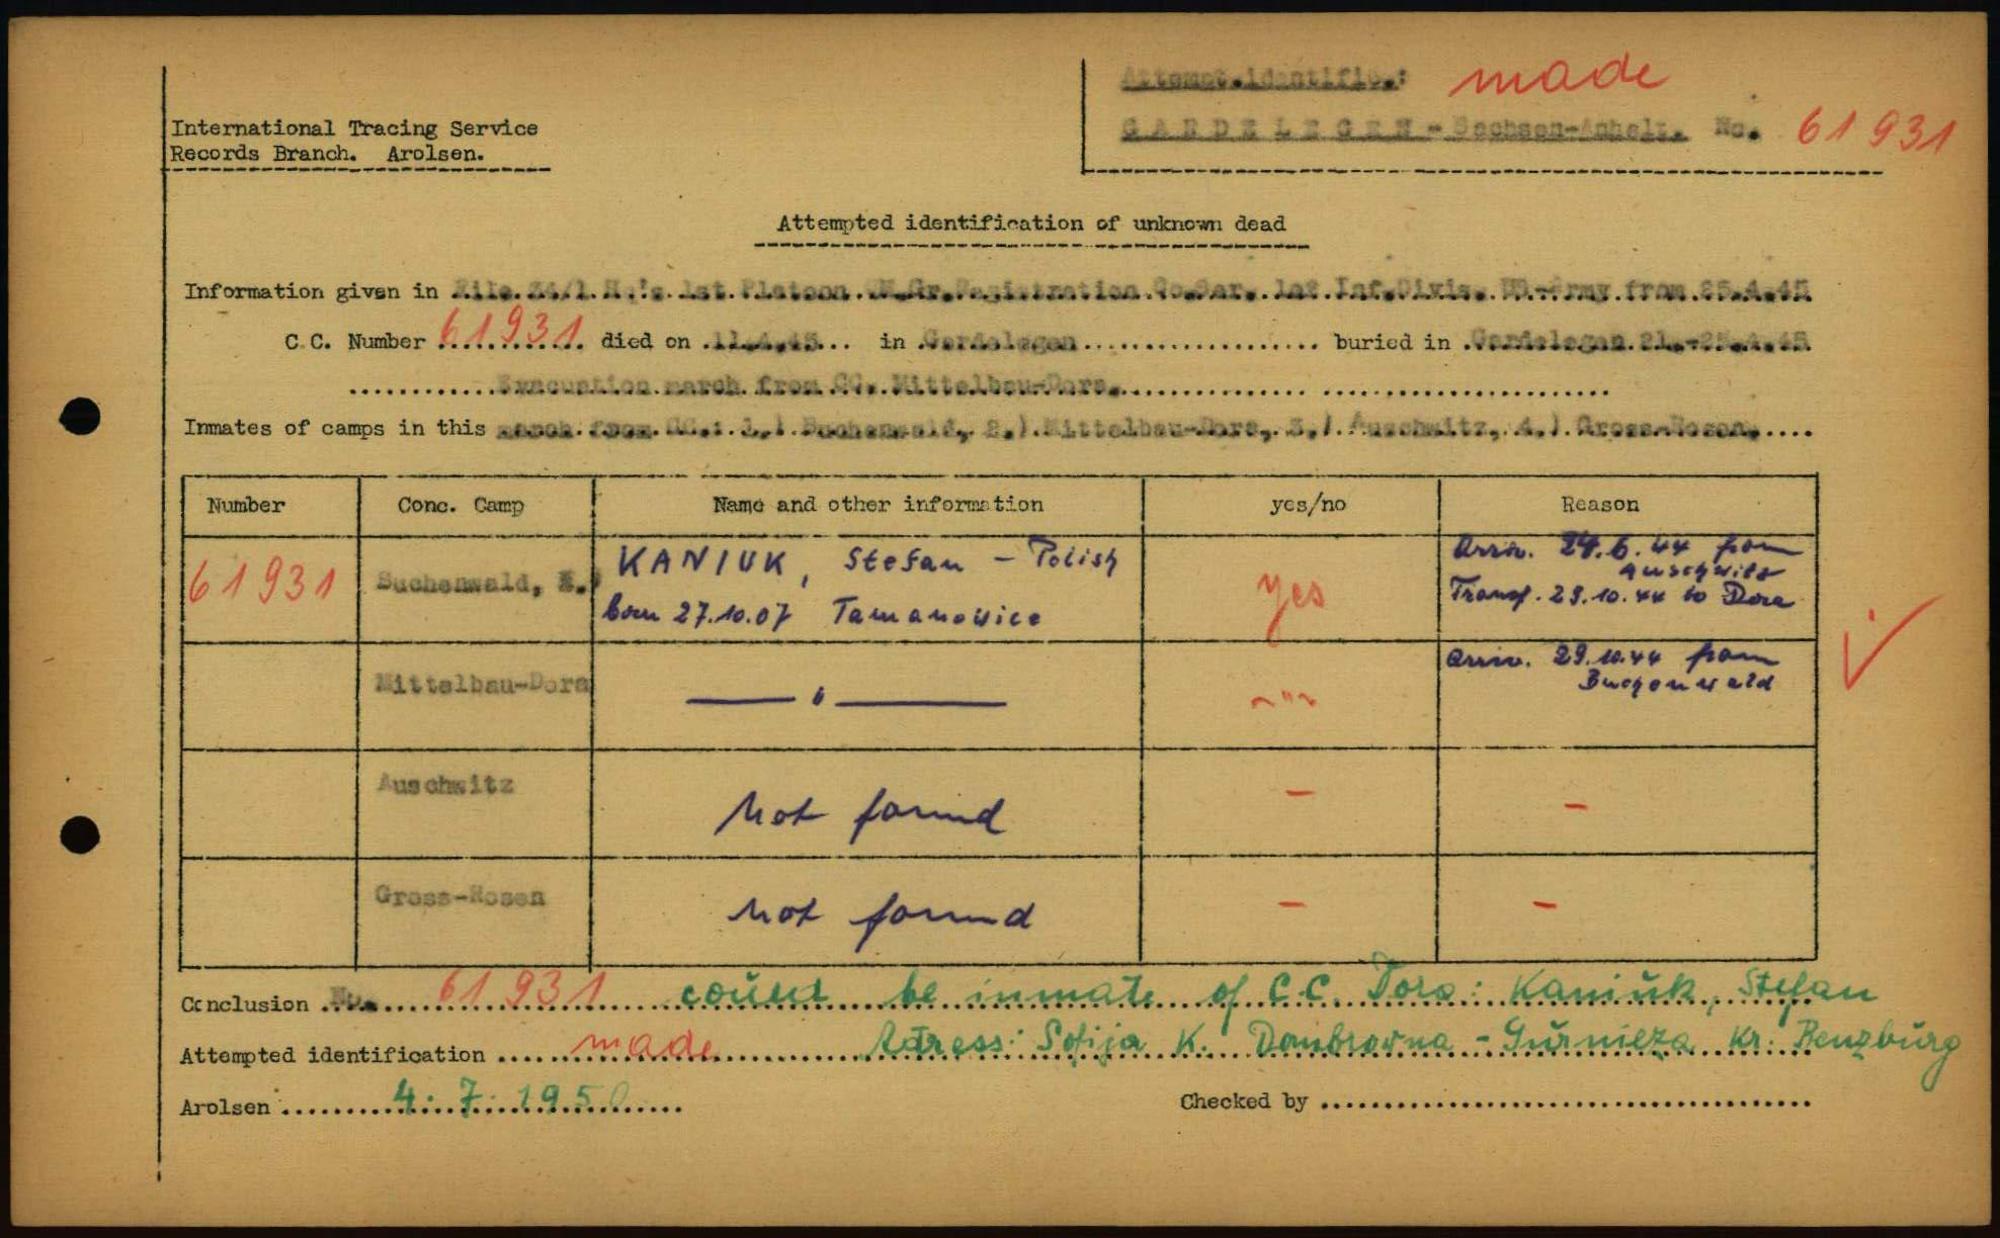 Attempt.identific.: made
International Tracing Service
Records Branch. Arolsen.
GARDELEGEN - Sachsen-Anhalt. No. 61931
Attempted identification of unknown dead
Information given in File 34/1 Hq's 1st Platoon QM.Gr.Registration Co.Ser. Inf.Divis. US-Army from 25.4.45
C.C. Number 61931 died on 11.4.45 in Gardelegen buried in Gardelegen 21.-25.4.45
Evacuation march from CC. Mittelbau-Dora.
Inmates of camps in this march from CC.: 1.) Buchenwald, 2.) Mittelbau-Dora, 3.) Auschwitz, 4.) Gross-Rosen.
Number Conc. Camp Name and other information yes/no Reason
61931 Buchenwald, KANIUK, Stefan - Polish yes Arriv. 24.6.44 from Auschwitz
born 27.10.07 Tamanowice Transf. 29.10.44 to Dora
Mittelbau-Dora — " — — " — Arriv. 29.10.44 from
Buchenwald
Auschwitz Not found - -
Gross-Rosen Not found - -
Conclusion No. 61931 could be inmate of C.C. Dora: Kaniuk, Stefan
Attempted identification made Adress: Sofija K. Dombrovna - Gurnieza Kr. Benzburg
Arolsen 4.7.1950 Checked by